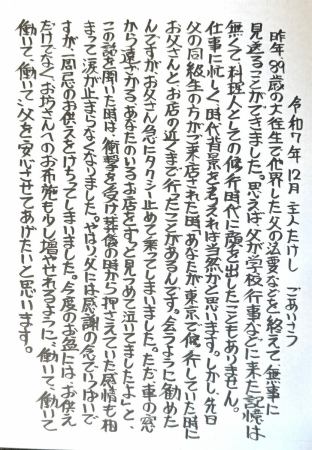 令和7年12月 主人たけし ごあいさつ
昨年89歳の大往生で他界した父の法要などを終えて無事に
見送ることができました。思えば父が学校行事などに来た記憶は
無くて、料理人としての修行時代に顔を出したこともありません。
仕事に忙しく、時代背景を考えれば当然かと思います。しかし先日
父の同級生の方がご来店された時「あなたが東京で修行していた時に
お父さんと、お店の近くまで行ったことがあるんです。会うように勧めた
んですが、お父さん急にタクシー止めて乗ってしまいました。ただ、車の窓
から遠ざかる、あなたのいるお店をずっと見つめて泣いてましたよ」と、
この話を聞いた時は、衝撃を受け葬儀の時から押さえていた感情も相
まって涙が止まらなくなりました。やはり父には感謝の念でいっぱいで
すが、一周忌のお供えをけちってしまいました。今度のお盆には、お供え
だけでなく、お坊さんへのお布施も少し増やせるように、働いて、働いて
働いて、働いて、父を安心させてあげたいと思います。